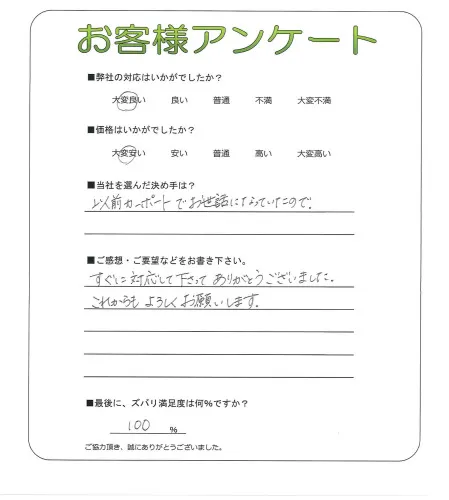 お客様アンケート
■弊社の対応はいかがでしたか？
大変良い 良い 普通 不満 大変不満
■価格はいかがでしたか？
大変安い 安い 普通 高い 大変高い
■当社を選んだ決め手は？
以前カーポートでお世話になっていたので。
■ご感想・ご要望などをお書き下さい。
すぐに対応して下さってありがとうございました。
これからもよろしくお願いします。
■最後に、ズバリ満足度は何%ですか？
100 %
ご協力頂き、誠にありがとうございました。